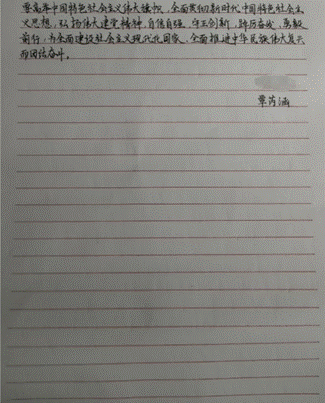 要高举中国特色社会主义伟大旗帜，全面贯彻新时代中国特色社会主
义思想，弘扬伟大建党精神，自信自强、守正创新，踔厉奋发、勇毅
前行，为全面建设社会主义现代化国家、全面推进中华民族伟大复兴
而团结奋斗。
覃芮涵